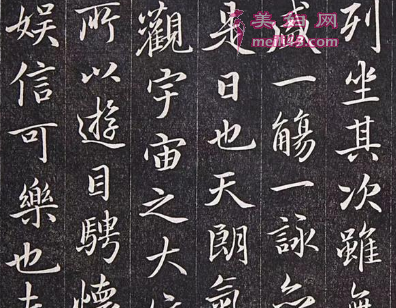 列坐其次雖無
盛一觴一詠亦
是日也天朗氣
觀宇宙之大
所以遊目騁懷
娛信可樂也夫